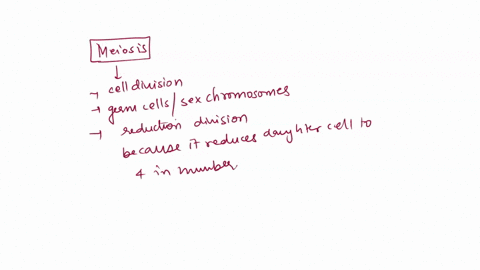 Meiosis
→ cell division
→ germ cells/sex chromosomes
→ reduction division
because it reduces daughter cell to
4 in number